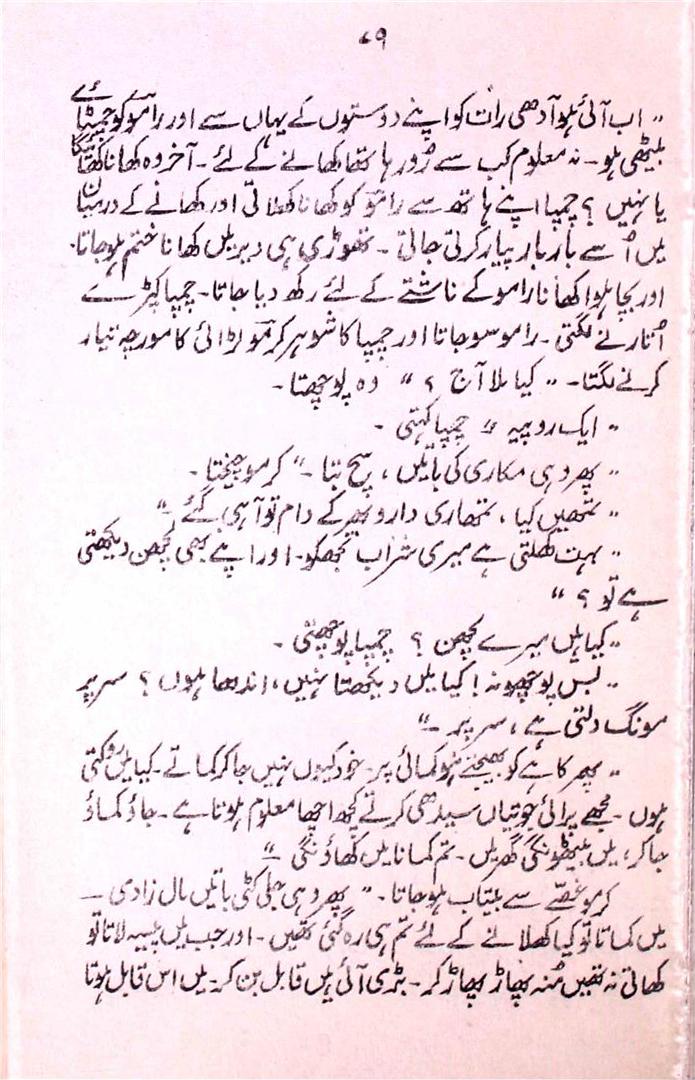 ۷۹
،، اب آئی ہو آدھی رات کو اپنے دوستوں کے یہاں سے اور رامو کو چمٹائے
بیٹھی ہو۔ نہ معلوم کب سے رُو رہا تھا کھانے کے لئے۔ آخر وہ کھانا کھائیگا
یا نہیں؟ چمپا اپنے ہاتھ سے رامو کو کھانا کھلاتی اور کھانے کے درمیان
میں اُسے بار بار پیار کرتی جاتی۔ تھوڑی ہی دیر میں کھانا ختم ہو جاتا۔
اور بچا ہوا کھانا رامو کے ناشتے کے لئے رکھ دیا جاتا۔ چمپا کپڑے
اُتارنے لگتی۔ رامو سو جاتا اور چمپا کا شوہر کرمو لڑائی کا مورچہ تیار
کرنے لگتا۔ ،، کیا ملا آج؟ “ وہ پوچھتا۔
،، ایک روپیہ “ چمپا کہتی۔
،، پھر وہی مکاری کی باتیں، سچ بتا۔“ کرمو چیختا۔
،، تمھیں کیا، تمھاری دارو بھر کے دام تو آ ہی گئے۔“
،، بہت کھلتی ہے میری شراب تجھکو۔ اور اپنے بھی لچھن دیکھتی
ہے تو؟ “
،، کیا ہیں میرے لچھن؟ چمپا پوچھتی۔
،، بس پوچھو نہ! کیا میں دیکھتا نہیں، اندھا ہوں؟ سر پر
مونگ دلتی ہے، سر پر۔“
،، پھر کاہے کو بھیجتے ہو کمائی پر۔ خود کیوں نہیں جا کر کماتے۔ کیا میں روکتی
ہوں۔ مجھے پرائی جوتیاں سیدھی کرتے کچھ اچھا معلوم ہوتا ہے۔ جاؤ کماؤ
جا کر، میں بیٹھونگی گھر میں۔ تم کمانا میں کھاؤنگی۔“
کرمو غصّے سے بیتاب ہو جاتا۔ “ پھر وہی جلی کٹی باتیں مال زادی —
میں کماتا تو کیا کھلانے کے لئے تم ہی رہ گئی تھیں۔ اور جب میں پیسہ لاتا تو
کھاتی نہ تھیں مُنہ پھاڑ پھاڑ کر۔ بڑی آئی ہیں قابل بن کر۔ میں اس قابل ہوتا